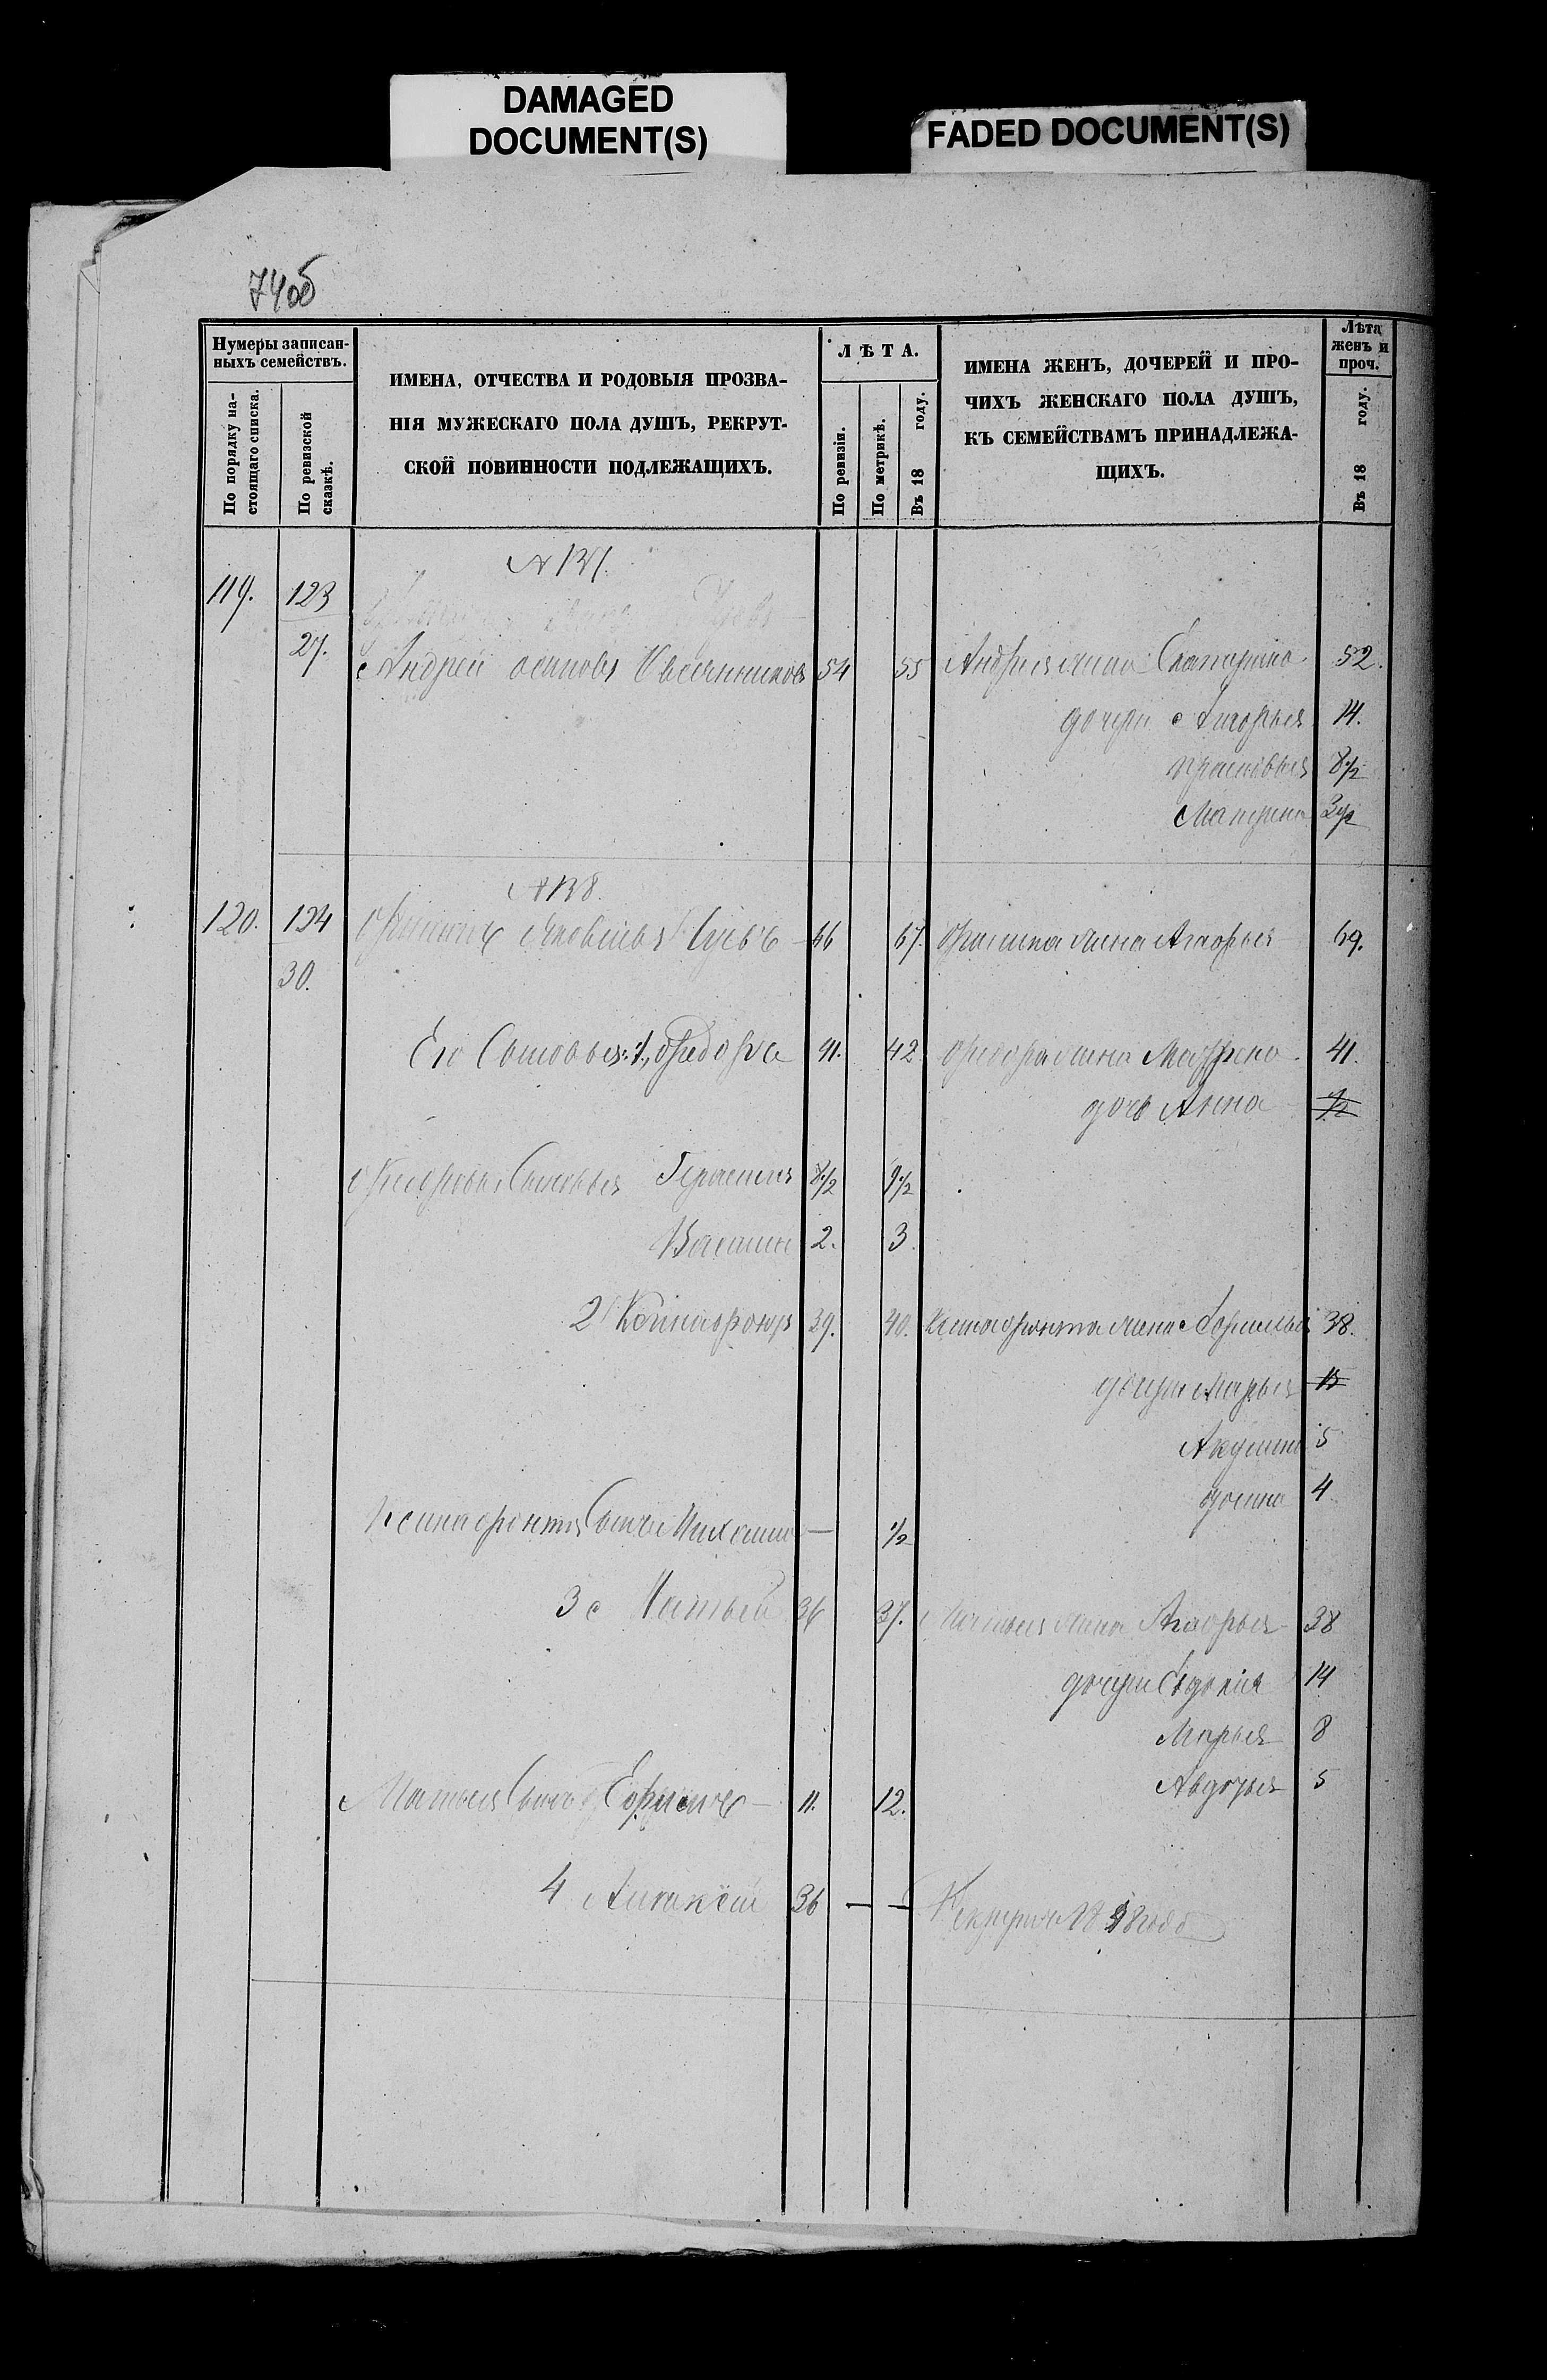 DAMAGED
DOCUMENT(S)
FADED DOCUMENT(S)
74об
Нумеры записан-
ныхъ семействъ.
По порядку на-
стоящаго списка.
По ревизской
сказкѣ.
ИМЕНА, ОТЧЕСТВА И РОДОВЫЯ ПРОЗВА-
НІЯ МУЖЕСКАГО ПОЛА ДУШЪ, РЕКРУТ-
СКОЙ ПОВИННОСТИ ПОДЛЕЖАЩИХЪ.
ЛѢТА.
По ревизіи.
По метрикѣ.
Въ 18 году.
ИМЕНА ЖЕНЪ, ДОЧЕРЕЙ И ПРО-
ЧИХЪ ЖЕНСКАГО ПОЛА ДУШЪ,
КЪ СЕМЕЙСТВАМЪ ПРИНАДЛЕЖА-
ЩИХЪ.
Лѣта
женъ и
проч.
Въ 18 году.
119. 123
27.
Андрей Осиповъ 54 55 Андрея жена Екатерина 52.
дочери 14.
Прасковья 8½
Матрена
120. 124 Яковлевъ 66 67. жена Агафья 69.
30.
Его Сыновья: 1, Федоръ 41. 42 Федора жена Матрена 41.
дочь Анна ½
Федоровы Сыновья Герасимъ 8½ 9½
Василій 2. 3.
2 Ксенофонтъ 39. 40. Ксенофонта жена 38.
дочери Марья 15
Акулина 5
4
Ксенофонта Сынъ Михаилъ — ½
3 Матвей 36 37. Матвея жена Агафья 38
дочери Евдокія 14
Марья 8
Авдотья 5
Матвея Сынъ Ефимъ — 11. 12.
4 36 — —